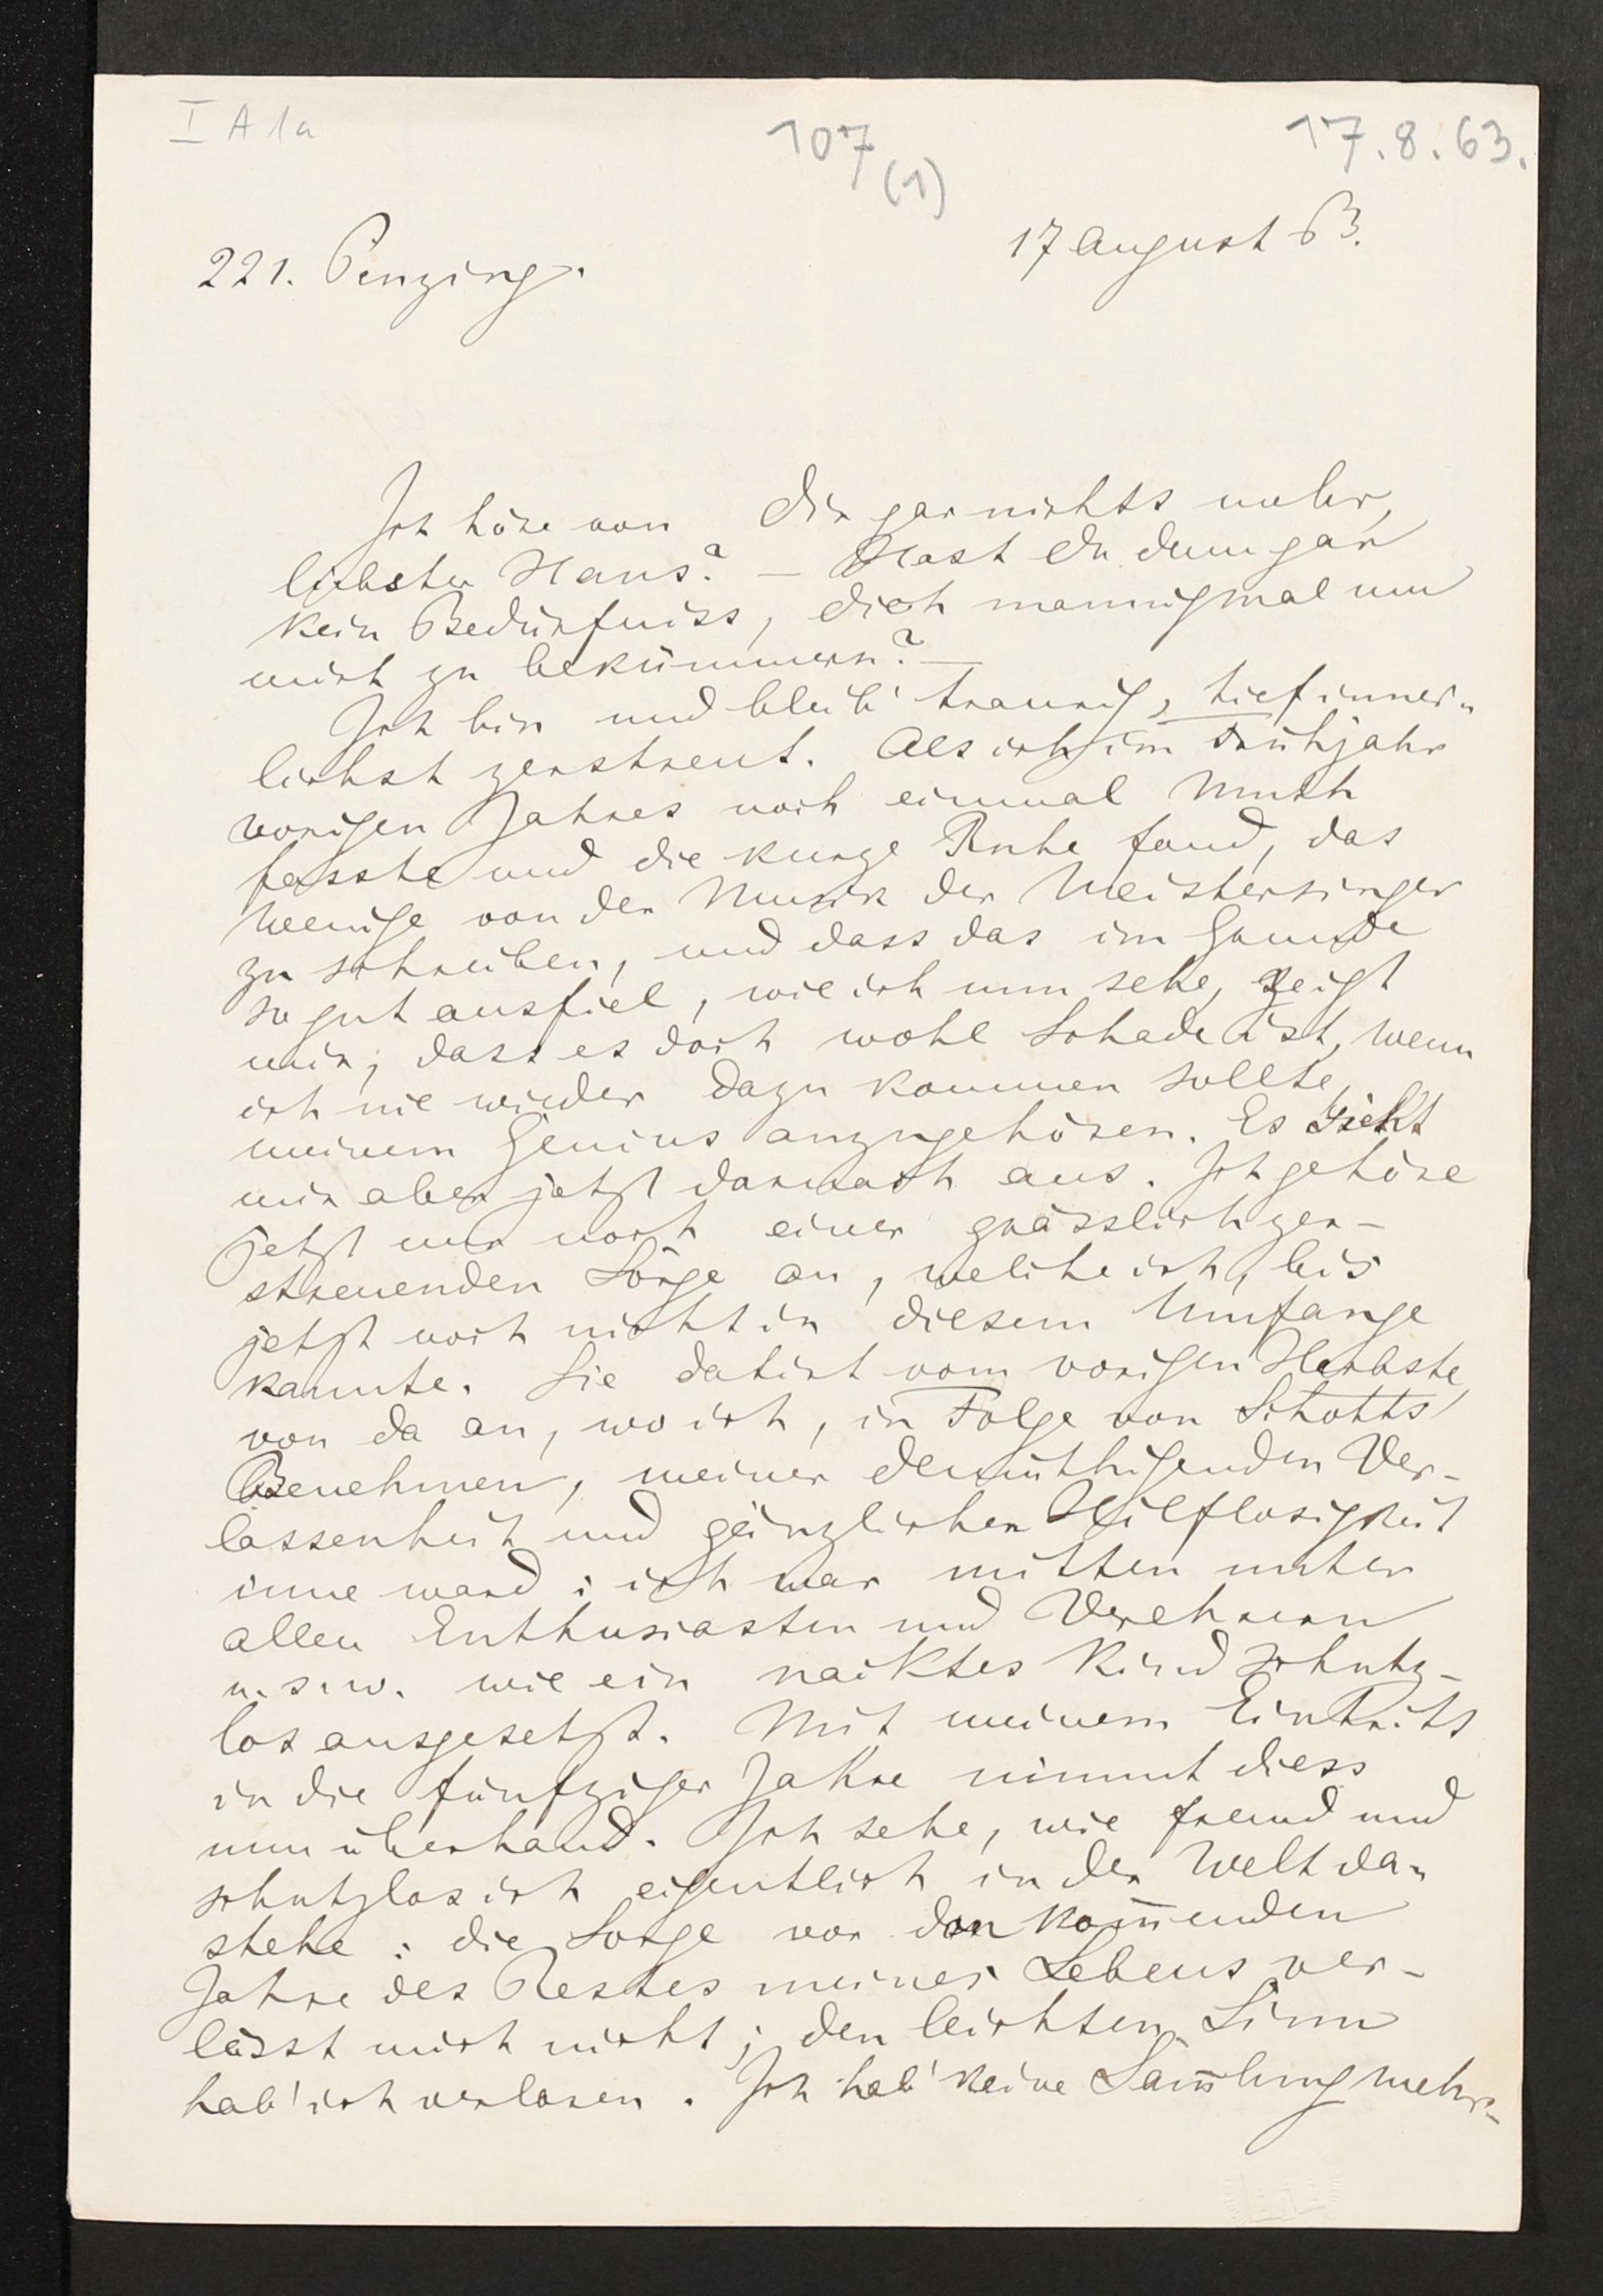 I A 1a
107
(1)
17.8.63.
221. Penzing.
17 August 63.
Ich höre von Dir gar nichts mehr,
liebster Hans? — Hast Du denn gar
kein Bedürfniss, dich mannigmal um
mich zu bekümmern? —
Ich bin und bleib' traurig, tief inner-
lichst zerstreut. Als ich im Frühjahr
vorigen Jahres noch einmal Muth
fasste und die kurze Ruhe fand, das
Wenige von der Musik der Meistersinger
zu schreiben, und dass das im Grunde
so gut ausfiel, wie ich nun sehe, zeigt
mir, dass es doch wohl Schade ist, wenn
ich nie wieder dazu kommen sollte,
meinem Genius anzugehören. Es sieht
mir aber jetzt darnach aus. Ich gehöre
jetzt nur noch einer grässlich zer-
streuenden Sorge an, welche ich, bis
jetzt noch nicht in diesem Umfange
kannte. Sie datirt vom vorigen Herbste,
von da an, wo ich, in Folge von Schotts
Benehmen, meiner demüthigenden Ver-
lassenheit und gänzlichen Hilflosigkeit
inne ward: ich war mitten unter
allen Enthusiasten und Verehrern
u. s. w. wie ein nacktes Kind schutz-
los ausgesetzt. Mit meinem Eintritt
in die fünfziger Jahre nimmt diess
nun überhand. Ich sehe, wie fremd und
schutzlos ich eigentlich in der Welt da-
stehe: die Sorge vor den kom̄enden
Jahre des Restes meines Lebens ver-
lässt mich nicht; den leichten Sinn
hab' ich verloren. Ich hab' keine Sam̄lung mehr.-